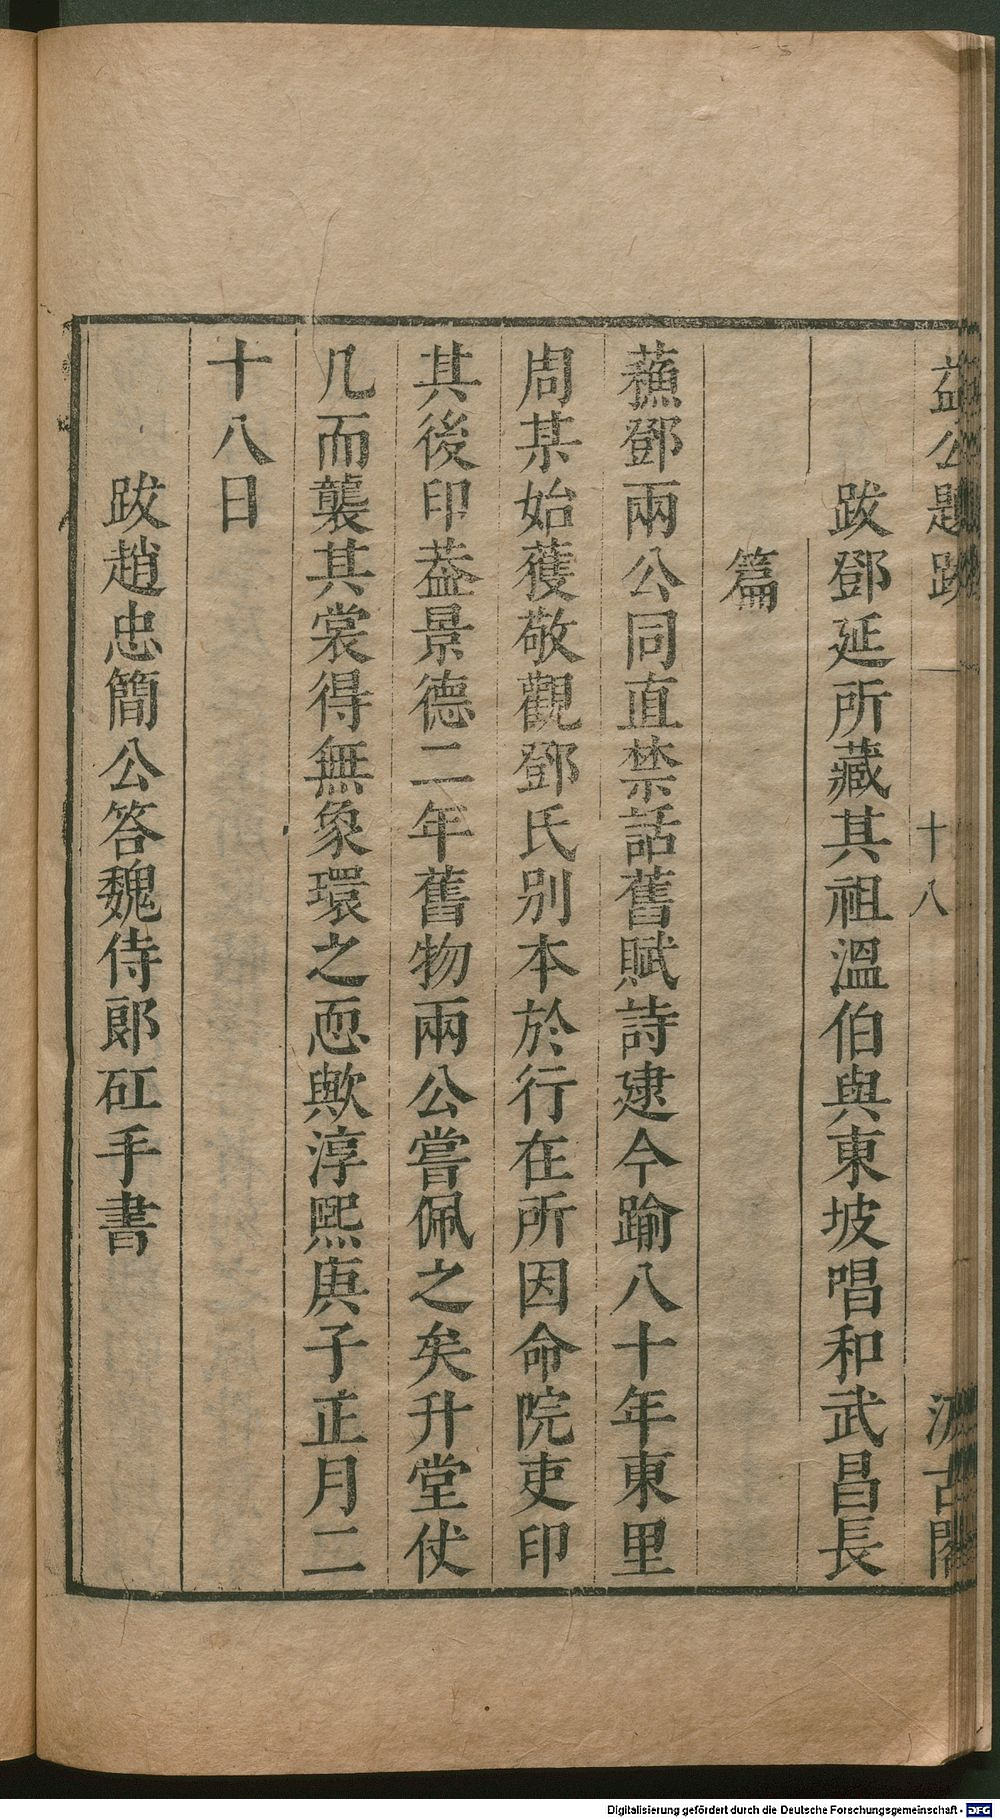 益公題跋 十八 汲古閣
跋鄧延所藏其祖溫伯與東坡唱和武昌長
篇
蘓鄧兩公同直禁話舊賦詩逮今踰八十年東里
周某始獲敬觀鄧氏別本於行在所因命院吏印
其後印葢景德二年舊物兩公嘗佩之矣升堂伏
几而襲其裳得無象環之恧歟淳熙庚子正月二
十八日
跋趙忠簡公答魏侍郎矼手書
Digitalisierung gefördert durch die Deutsche Forschungsgemeinschaft - DFG